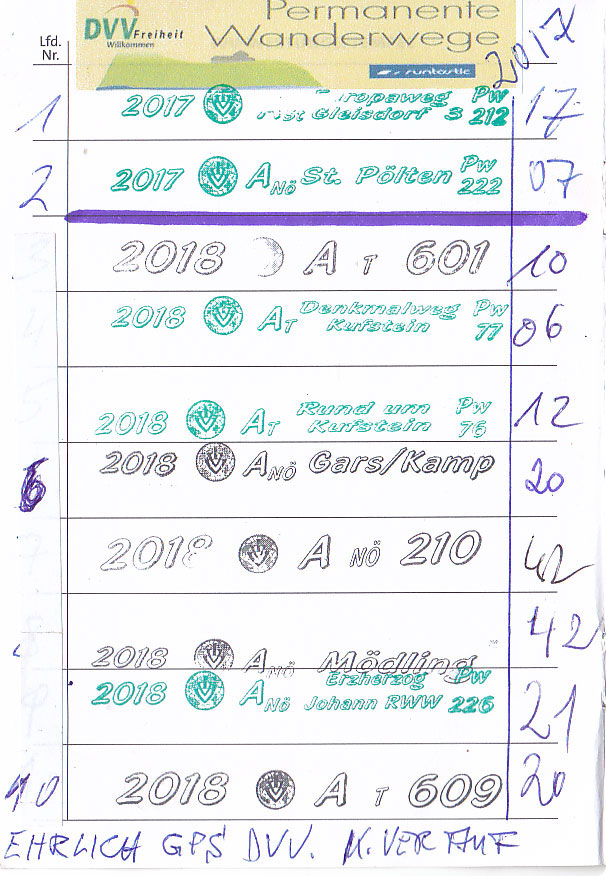 DVV Freiheit
Willkommen
Permanente
Wanderwege
runtastic
2017
Lfd.
Nr.
1 2017 Europaweg Pw
Gleisdorf S 212 17
2 2017 ANÖ St. Pölten Pw
222 07
2018 A T 601 10
2018 AT Denkmalweg Pw
Kufstein 77 06
2018 AT Rund um Pw
Kufstein 76 12
6 2018 ANÖ Gars/Kamp 20
2018 A NÖ 210 42
2018 ANÖ Mödling 42
2018 ANÖ Erzherzog Pw
Johann RWW 226 21
10 2018 A T 609 20
EHRLICH GPS DVV.